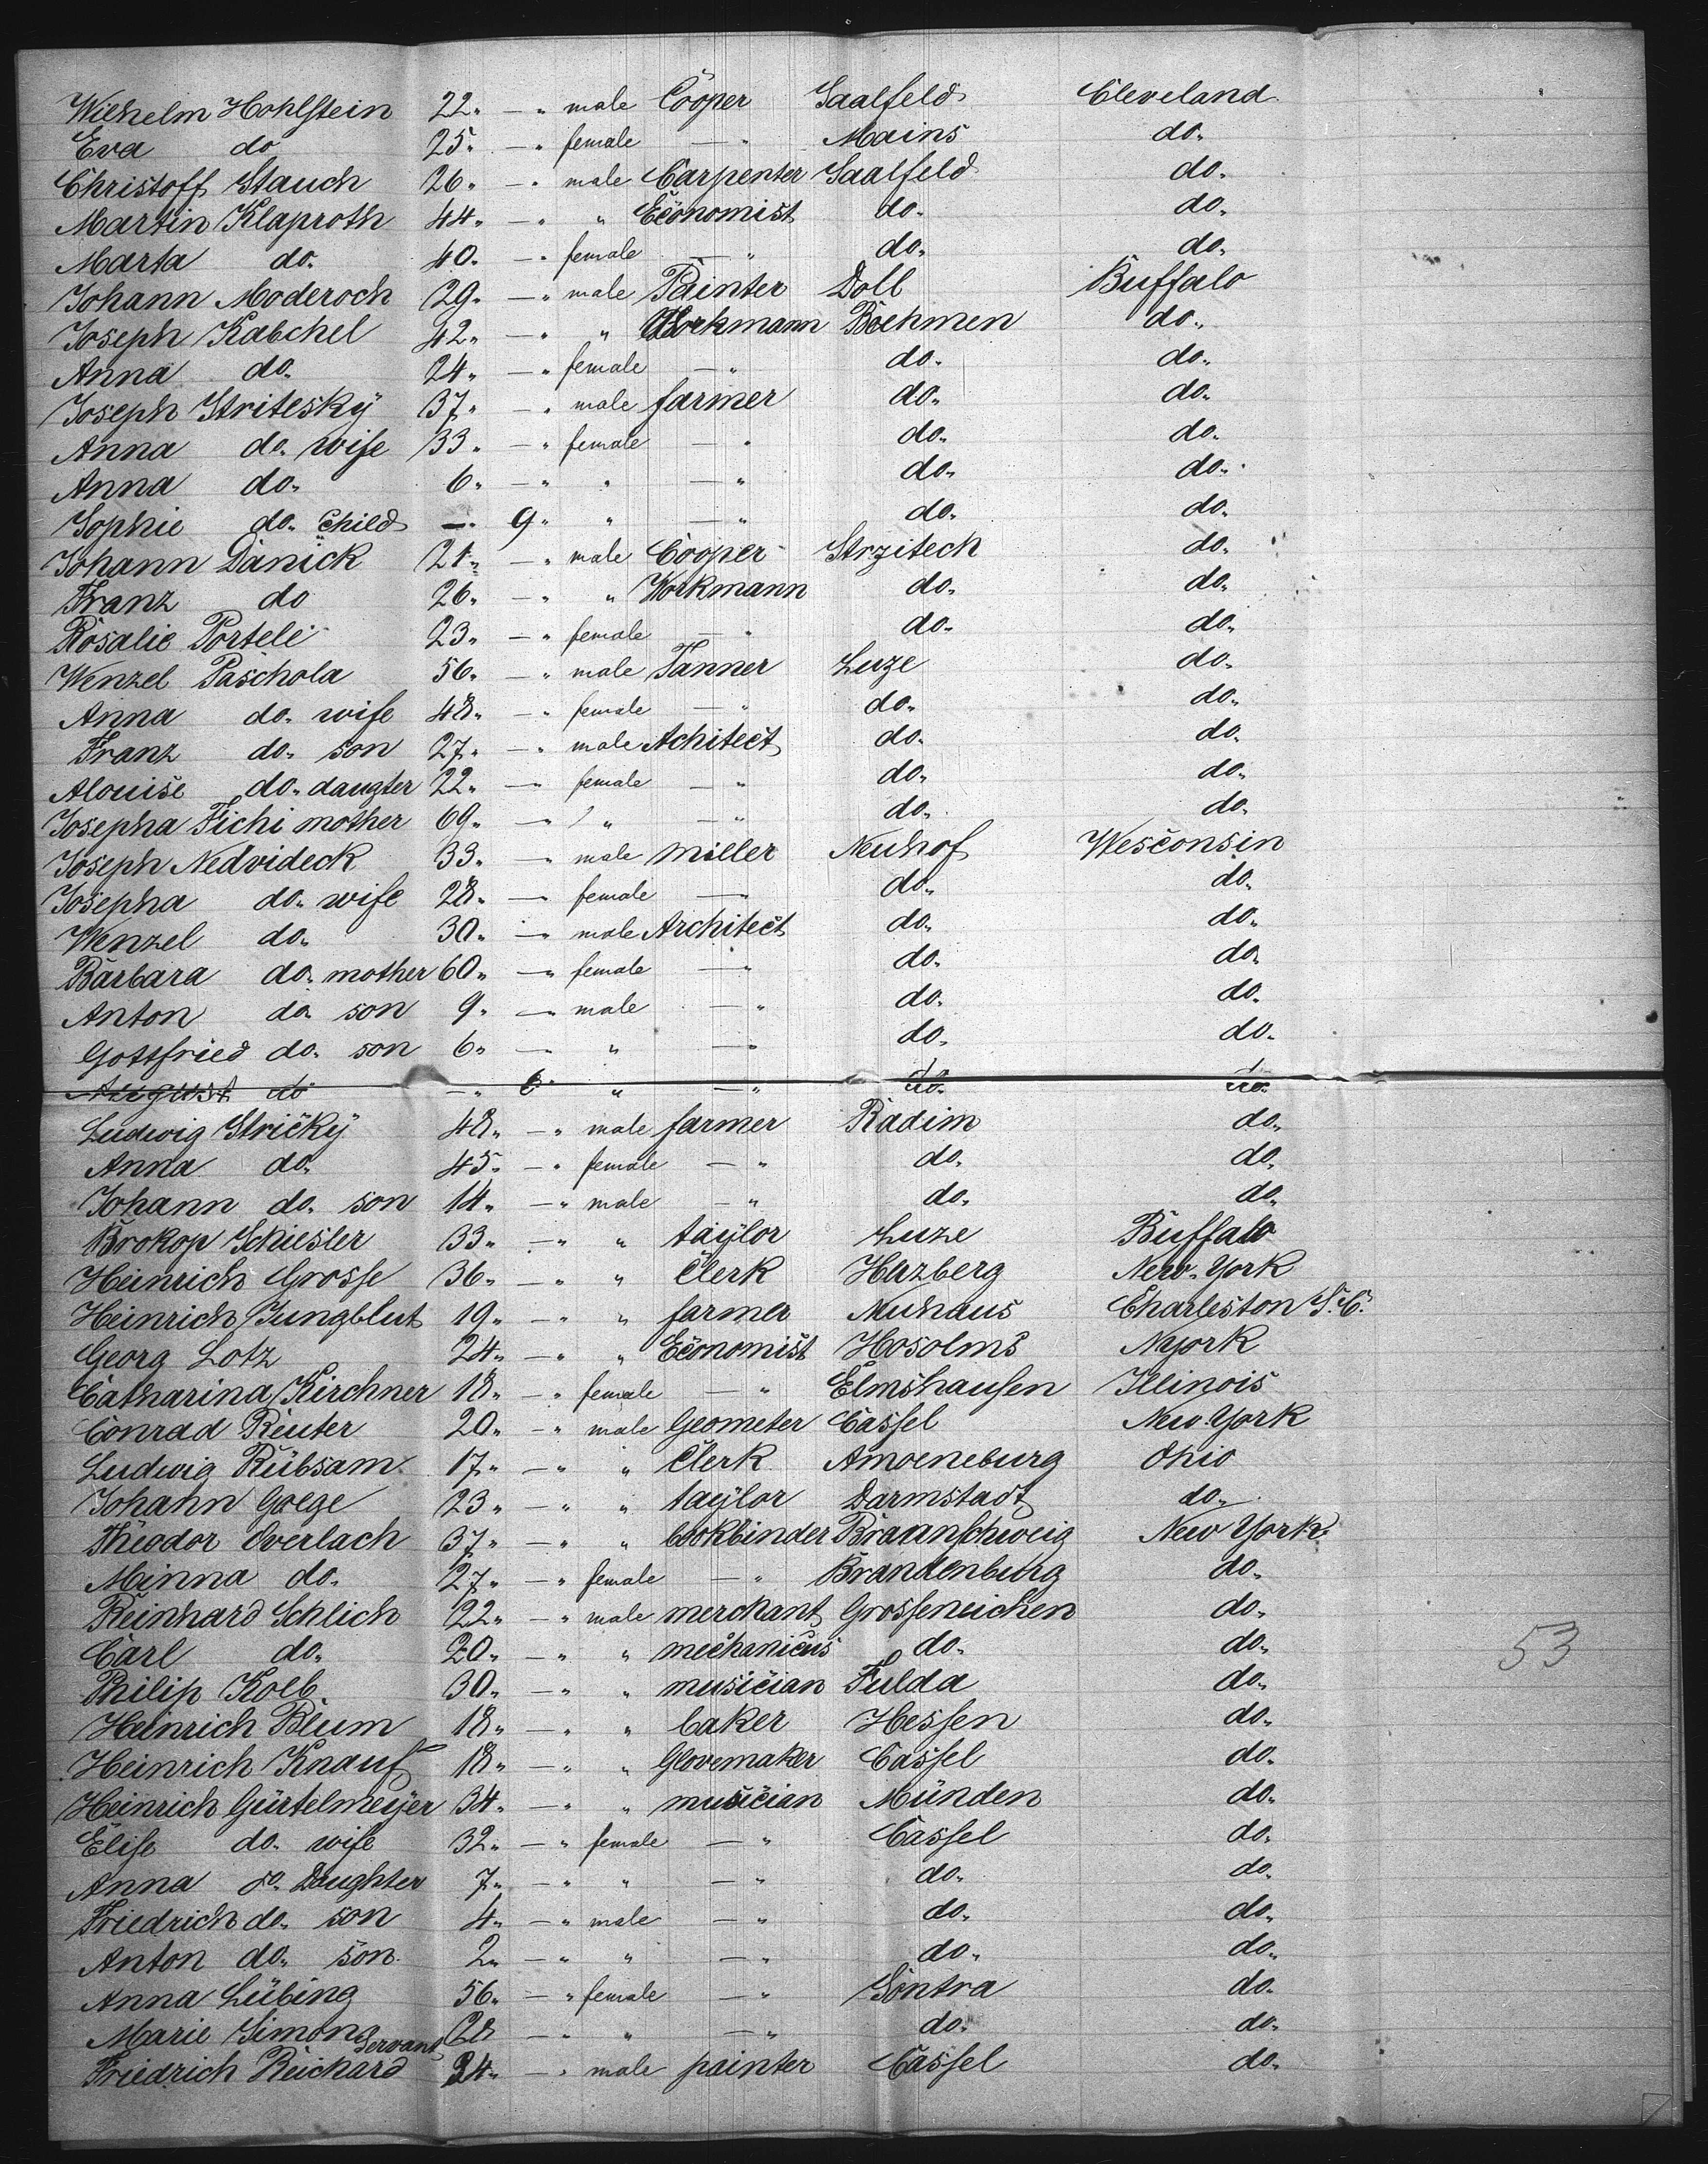 Wilhelm Hohlstein 22" — " male Cooper Saalfeld Cleveland
Eva do 25" — " female — " Mains do"
Christoff Stauch 26" — " male Carpenter Saalfeld do"
Martin Klaproth 44" — " " Economist do" do"
Marta do" 40" — " female — " do" do"
Johann Moderoch 29" — " male Painter Doll Buffalo
Joseph Kabchel 42" — " " Workmann Boehmen do"
Anna do" 24" — " female — " do" do"
Joseph Stritesky 37" — " male farmer do" do"
Anna do" wife 33" — " female — " do" do"
Anna do" 6" — " " — " do" do"
Sophie do" Child —" 9" " — " do" do"
Johann Danick 21" — " male Cooper Strzitech do"
Franz do 26" — " " Workmann do" do"
Rosalie Porteli 23" — " female — " do" do"
Wenzel Paschola 56" — " male Tanner Luze do"
Anna do" wife 48" — " female — " do" do"
Franz do" son 27" — " male Achitect do" do"
Alouise do" daugter 22" — " female — " do" do"
Josepha Fichi mother 69" — " " — " do" do"
Joseph Nedvideck 33" — " male Miller Neuhof Wesconsin
Josepha do" wife 28" — " female — " do" do"
Wenzel do" 30" — " male Architect do" do"
Barbara do" mother 60" — " female — " do" do"
Anton do" son 9" — " male — " do" do"
Gottfried do" son 6" — " " — " do" do"
August do — " 6" " — " do" do"
Ludwig Stricky 48" — " male farmer Radim do"
Anna do" 45" — " female — " do" do"
Johann do" son 14" — " male — " do" do"
Brokop Schiesler 33" — " " taylor Luze Buffalo
Heinrich Grosse 36" — " " Clerk Harzberg New-York
Heinrich Jungblut 19" — " " farmer Neuhaus Charleston S.C.
Georg Lotz 24" — " " Economist Hosolms Nyork
Catharina Kirchner 18" — " female — " Elmshausen Illinois
Conrad Reuter 20" — " male Geometer Cassel New York
Ludwig Rübsam 17" — " " Clerk Amoeneburg Ohio
Johann Goege 23" — " " taylor Darmstadt do"
Theodor Overlach 37" — " " bookbinder Braunschweig New York
Minna do" 27" — " female — " Brandenburg do"
Reinhard Schlich 22" — " male merchant Grosseneichen do"
Carl do" 20" — " " mechanicus do" do"
Philip Kolb 30" — " " musician Fulda do"
Heinrich Blum 18" — " " baker Hessen do"
Heinrich Knauf 18" — " " Glovemaker Cassel do"
Heinrich Gürtelmeyer 34" — " " musician Münden do"
Elise do" wife 32" — " female — " Cassel do"
Anna do" Daughter 7" — " " — " do" do"
Friedrich do" son 4" — " male — " do" do"
Anton do" son 2" — " " — " do" do"
Anna Lübing 56" — " female — " Sontra do"
Marie Simon Servant 28 — " " — " do" do"
Friedrich Reichard 34" — " male painter Cassel do"
53